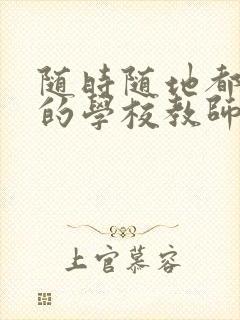 随時随地都
的學校教師
上官慕容